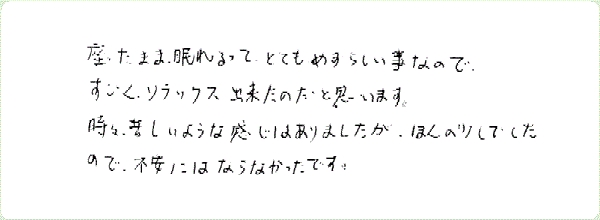 座ったまま、眠れるって、とてもめずらしい事なので、
すごく、リラックス出来たのだと思います。
時々、苦しいような感じはありましたが、ほんの少しでした
ので、不安にはならなかったです。